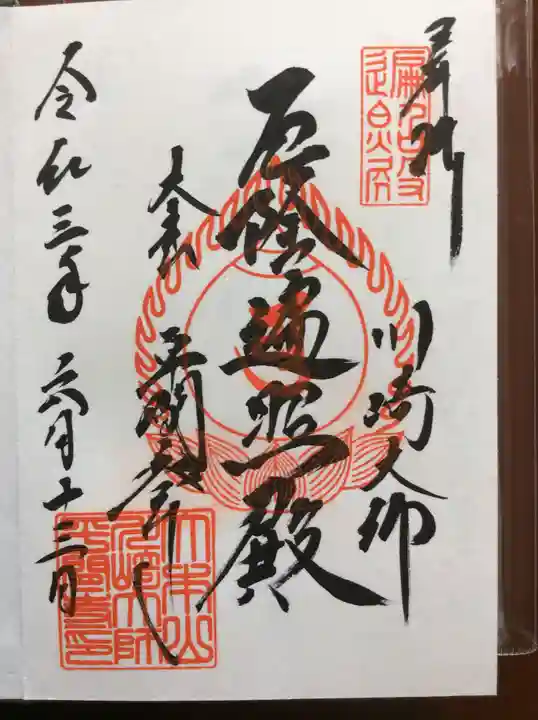 奉拝
川崎大師
厄除遍照殿
大本山
平間寺
令和三年六月十三日
大本山
川崎大師
平間寺印